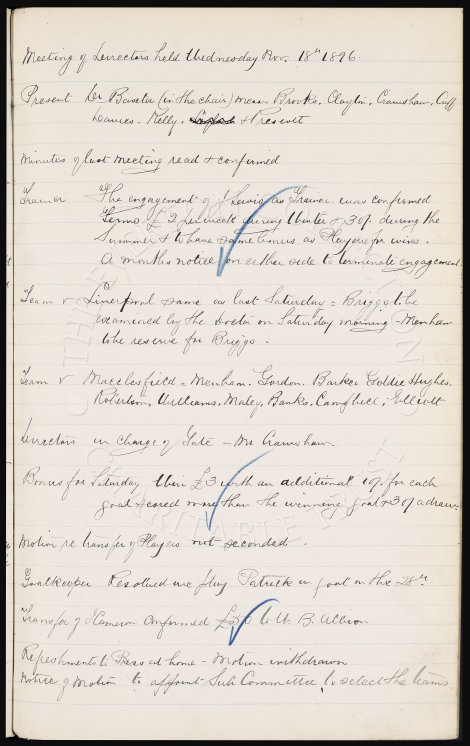 Meeting of Directors held Wednesday Nov. 18th 1896.
Present Dr Baxter (in the chair) Messrs Brooks, Clayton, Crawshaw, Cuff
Davies. Kelly, & Prescott
Minutes of last meeting read & confirmed
Trainer The engagement of J Lewis as Trainer was confirmed
Terms £2 per week during Winter & 30/- during the
Summer & to have same bonus as Players for wins.
A months notice on either side to terminate engagement.
Team v Liverpool same as last Saturday = Briggs to be
examined by the Doctor on Saturday morning - Menham
to be reserve for Briggs.
Team v Macclesfield = Menham. Gordon. Barker Goldie Hughes.
Robertson, Williams. Maley, Banks. Campbell, Elliott
Directors in charge of Gate - Mr Crawshaw.
Bonus for Saturday Win £3 with an additional 10/- for each
goal scored more than the winning goal & 30/- a draw.
Motion re transfer of Players not seconded.
Goalkeeper Resolved we play Patrick in goal on the 28th.
Transfer of Cameron confirmed to W. B. Albion
Refreshments to Press at home - Motion withdrawn
Notice of Motion to appoint Sub Committee to select the teams